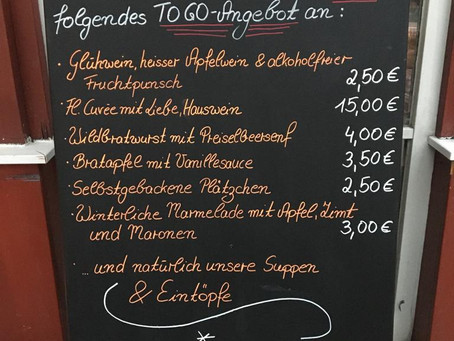 folgendes TO GO-Angebot an:
· Glühwein, heisser Apfelwein & alkoholfreier
Fruchtpunsch 2,50€
· Fl. Cuvée mit Liebe, Hauswein 15,00€
· Wildbratwurst mit Preiselbeersenf 4,00€
· Bratapfel mit Vanillesauce 3,50€
· Selbstgebackene Plätzchen 2,50€
· Winterliche Marmelade mit Apfel, Zimt
und Maronen 3,00€
· ... und natürlich unsere Suppen
& Eintöpfe